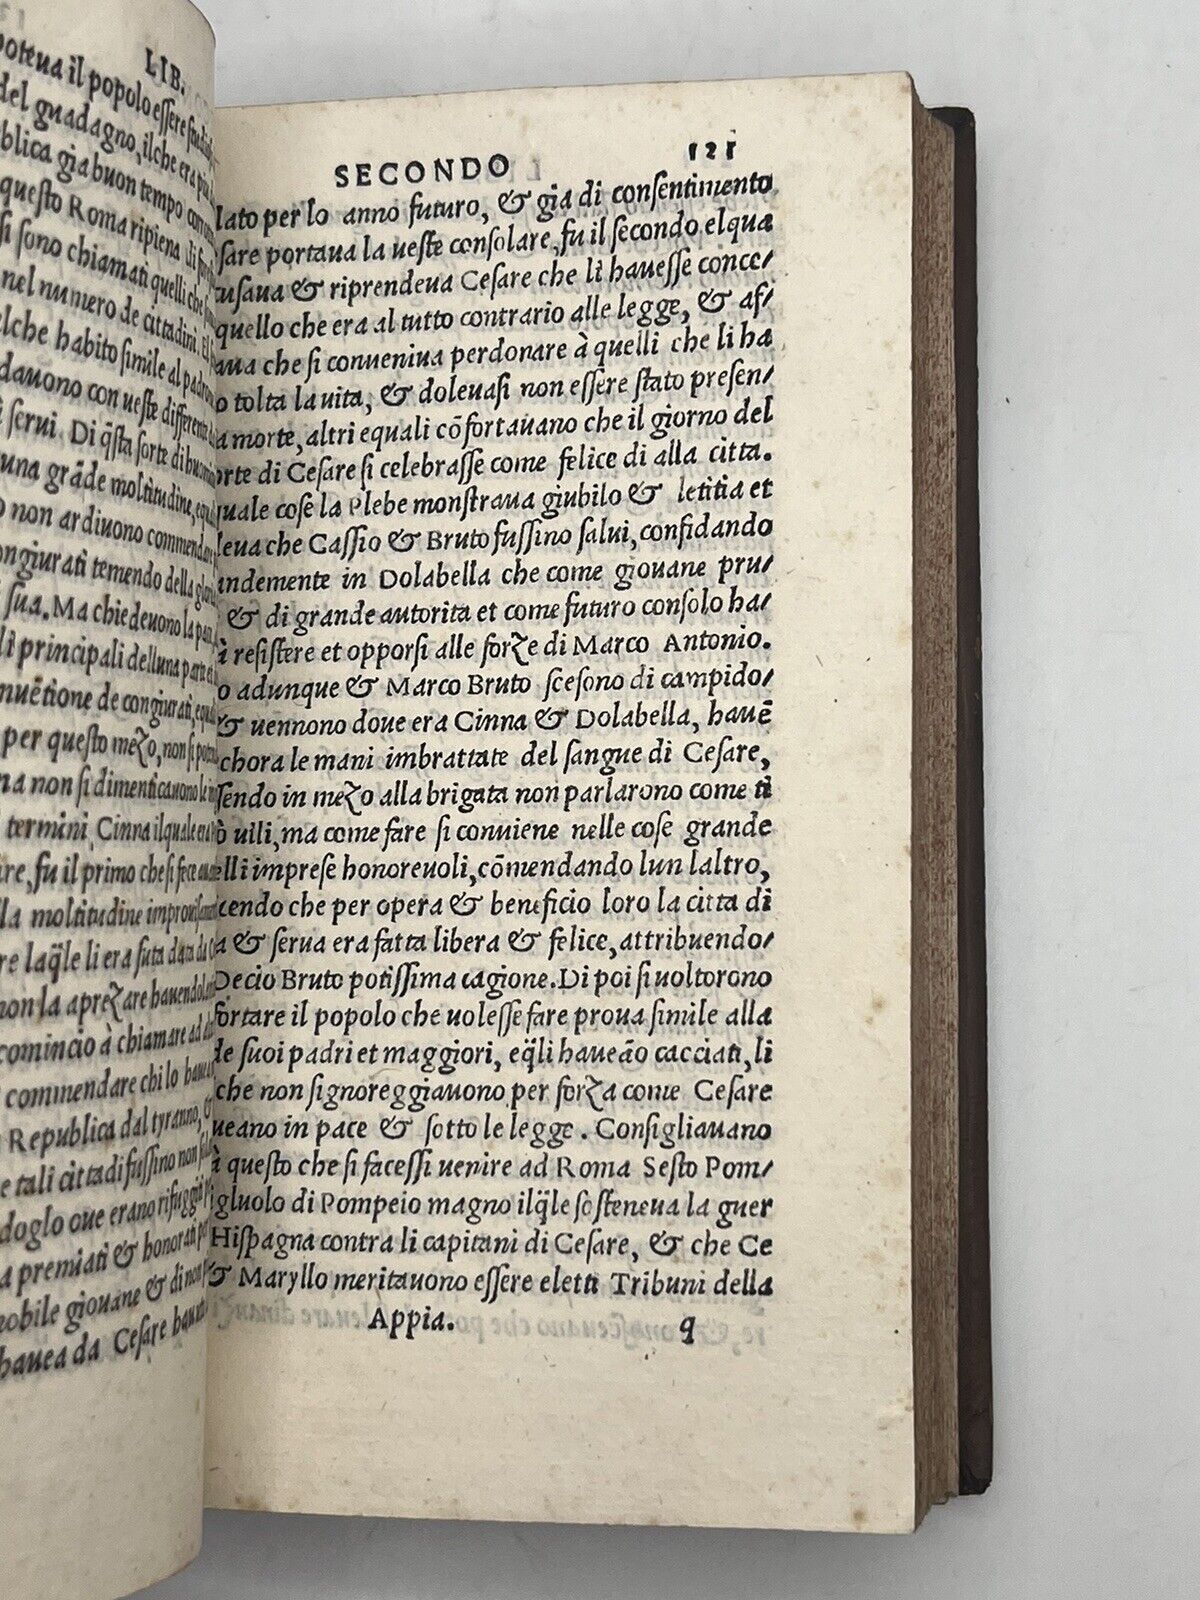 LIB.
poteua il popolo essere
del guadagno, ilche era piu
blica gia buon tempo
questo Roma ripiena di
si sono chiamati quelli che
nel numero de cittadini. El
elche habito simile al padrone
dauono con ueste differente
serui. Di q̃sta sorte di
una grãde moltitudine,
non ardiuono commendare
ongiurati temendo della gloria
sua. Ma chiedeuono la pace,
li principali delluna parte et
nuẽtione de congiurati,
per questo mezo, non si
ma non si dimenticauono le
termini, Cinna ilquale era
re, fu il primo che si fece
lla moltitudine
re laq̃le li era suta data da
non la aprezare hauendola
comincio à chiamare ad
commendare chi lo
Republica dal tyranno, &
e tali cittadi fussino non
doglo oue erano rifuggiti
a premiati & honorati
nobile giouane & di non
hauea da Cesare
SECONDO 121
lato per lo anno futuro, & gia di consentimento
sare portaua la ueste consolare, fu il secondo elqua
cusaua & riprendeua Cesare che li hauesse conce/
quello che era al tutto contrario alle legge, & af/
aua che si conueniua perdonare à quelli che li ha
o tolta la uita, & doleuasi non essere stato presen/
a morte, altri equali cõfortauano che il giorno del
orte di Cesare si celebrasse come felice di alla citta.
quale cose la Plebe monstraua giubilo & letitia et
leua che Cassio & Bruto fussino salui, confidando
andemente in Dolabella che come giouane pru/
& di grande autorita et come futuro consolo ha/
à resistere et opporsi alle forze di Marco Antonio.
o adunque & Marco Bruto scesono di campido/
& uennono doue era Cinna & Dolabella, hauẽ
chora le mani imbrattate del sangue di Cesare,
sendo in mezo alla brigata non parlarono come ti
ò uili, ma come fare si conuiene nelle cose grande
elli imprese honoreuoli, cõmendando lun laltro,
cendo che per opera & beneficio loro la citta di
a & serua era fatta libera & felice, attribuendo/
Decio Bruto potissima cagione. Di poi si uoltorono
fortare il popolo che uolesse fare proua simile alla
de suoi padri et maggiori, eq̃li haueão cacciati, li
che non signoreggiauono per forza come Cesare
ueano in pace & sotto le legge. Consigliauano
à questo che si facessi uenire ad Roma Sesto Pom/
igluolo di Pompeio magno ilq̃le sosteneua la guer
Hispagna contra li capitani di Cesare, & che Ce
& Maryllo meritauono essere eletti Tribuni della
Appia. q